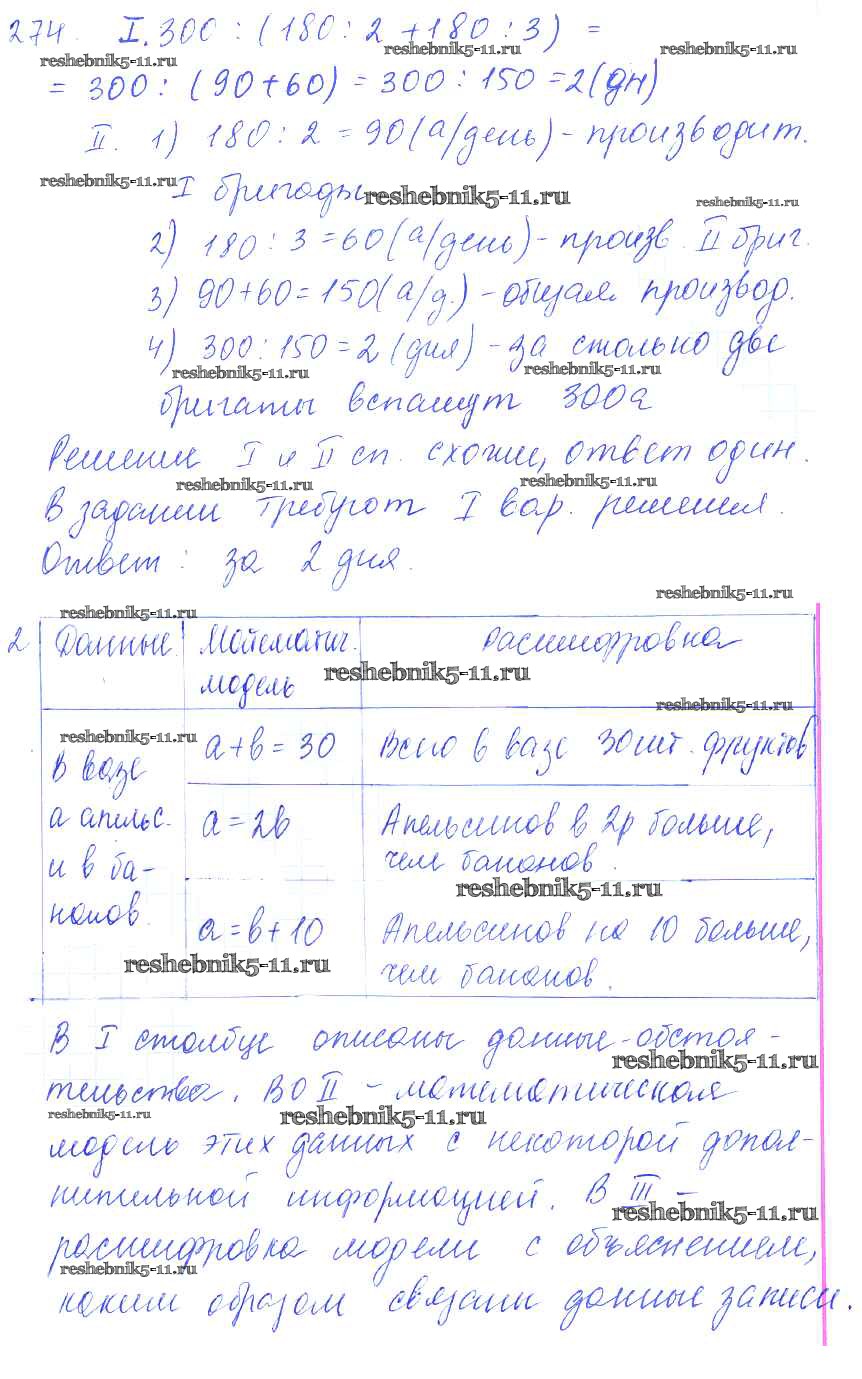 274. I. 300 : (180 : 2 + 180 : 3) =
reshebnik5-11.ru reshebnik5-11.ru reshebnik5-11.ru
= 300 : (90+60) = 300 : 150 = 2 (дн)
II. 1) 180 : 2 = 90 (а/день) - производит.
reshebnik5-11.ru
I бригады reshebnik5-11.ru reshebnik5-11.ru
2) 180 : 3 = 60 (а/день) - произв. II бриг.
3) 90+60 = 150 (а/д.) - общая производ.
4) 300 : 150 = 2 (дня) - за столько две
reshebnik5-11.ru reshebnik5-11.ru
бригаты вспашут 300а
Решение I и II сп. схожи, ответ один.
reshebnik5-11.ru reshebnik5-11.ru
В задании требуют I вар. решения.
Ответ: за 2 дня.
reshebnik5-11.ru
reshebnik5-11.ru
2 Данные Математич. Расшифровка
модель reshebnik5-11.ru
reshebnik5-11.ru
reshebnik5-11.ru a+b = 30 Всего в вазе 30 шт. фруктов
В вазе
a апельс. a = 2b Апельсинов в 2р больше,
и b ба- чем бананов.
reshebnik5-11.ru
нанов. a = b + 10 Апельсинов на 10 больше,
reshebnik5-11.ru чем бананов.
В I столбце описаны данные-обстоя-
reshebnik5-11.ru
тельства. Во II - математическая
reshebnik5-11.ru reshebnik5-11.ru
модель этих данных с некоторой допол-
нительной информацией. В III -
reshebnik5-11.ru
расшифровка модели с объяснением,
reshebnik5-11.ru
каким образом связаны данные записи.